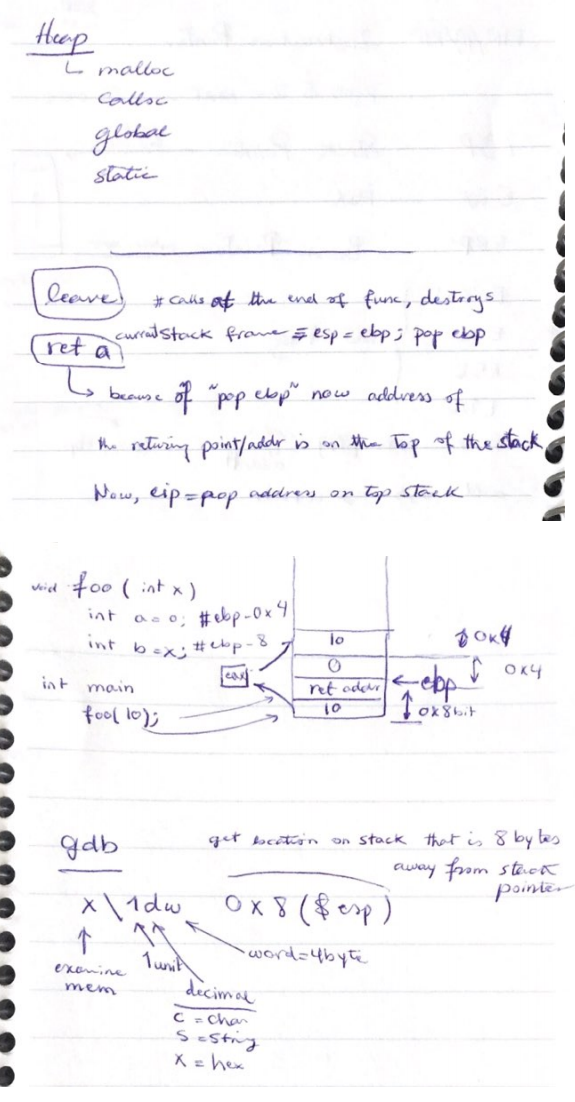 Heap
malloc
calloc
global
static
leave # calls at the end of func, destroys
current stack frame = esp = ebp; pop ebp
ret a
because of "pop ebp" now address of
the returing point/addr is on the Top of the stack
Now, eip = pop address on top stack
void foo ( int x )
int a = 0; # ebp-0x4
int b = x; # ebp-8
int main
foo( 10);
eax
10
0
ret addr
10
0x4
ebp
0x4
0x8bit
gdb
get location on stack that is 8 bytes
away from stack
pointer
x \ 1dw 0x8 ($esp)
examine
mem
1unit
word=4byte
decimal
c = char
s = string
x = hex